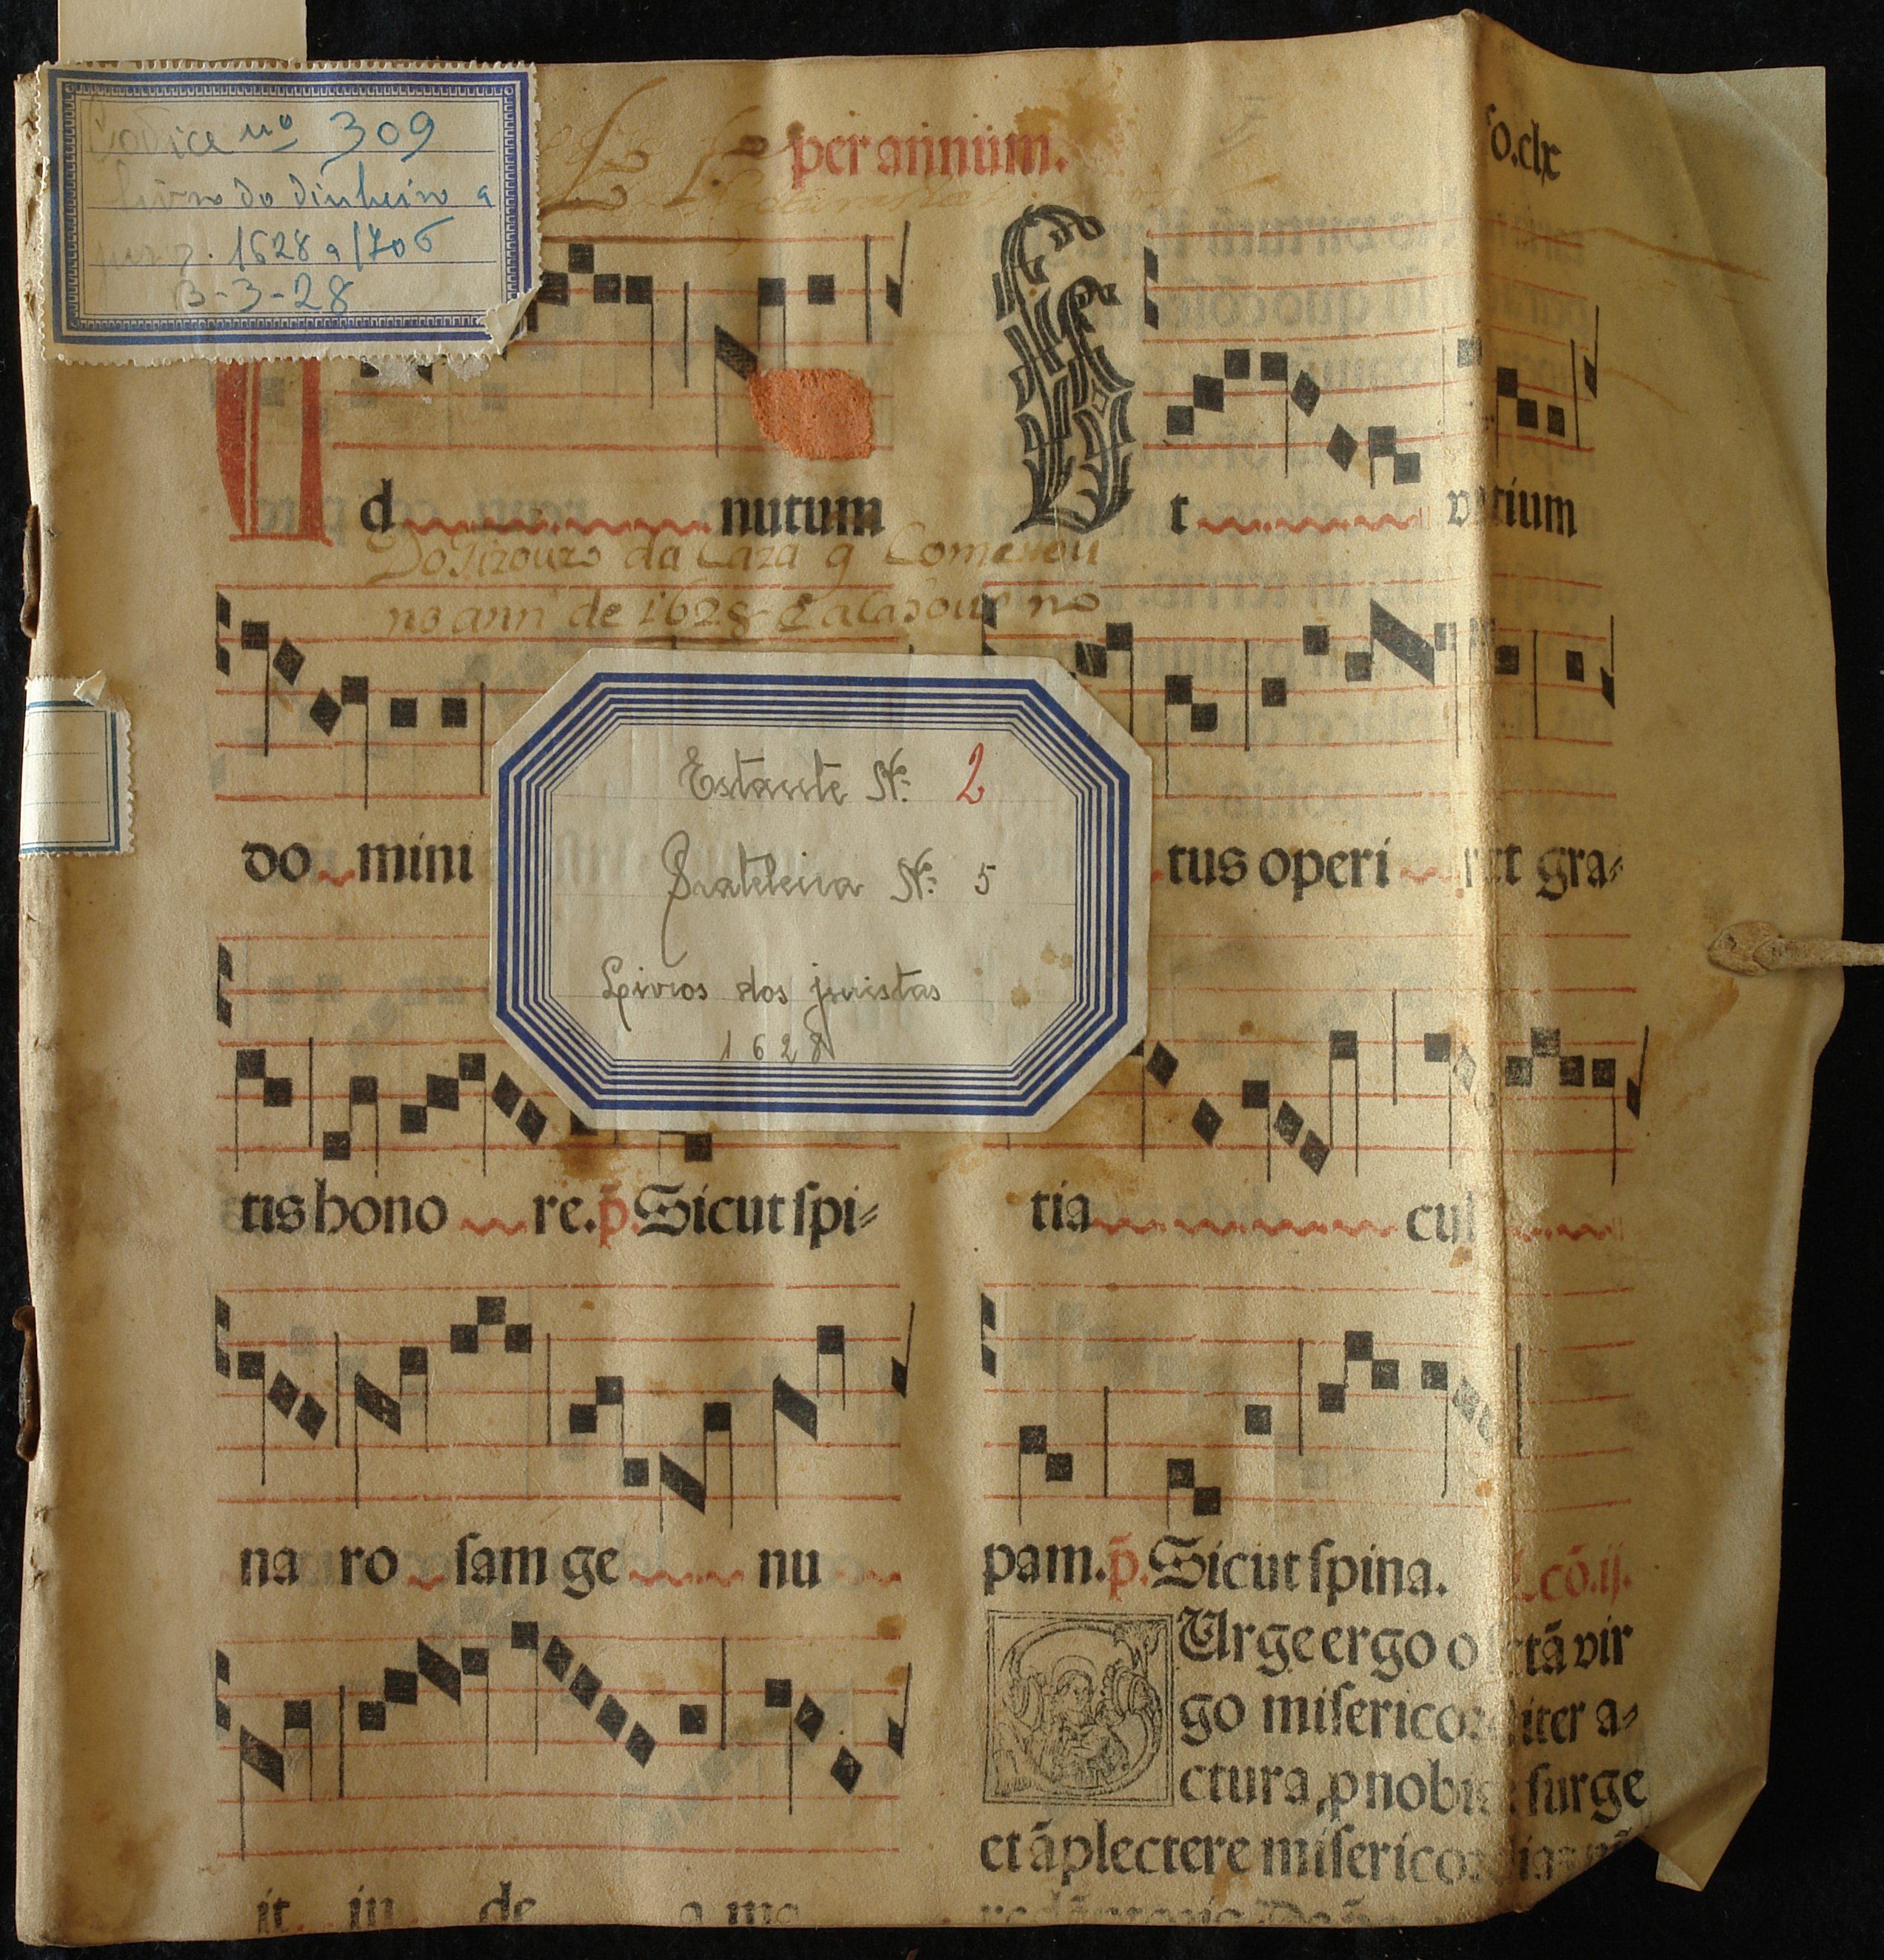 Codice nº 309
Livro do dinheiro a
juro. 1628 a 1706
B-3-28
per annum.
fo.clx
d nutum
Do Tizouro da Caza q Comesou
no ann de 1628 E acabou no
do mini
tis hono re. p̄. Sicut ſpi⸗
na ro ſam ge nu
it in de a ma
Estante Nº: 2
Prateleira Nº: 5
Livros dos juristas
1628
t vitium
tus operi ret gra⸗
tia cul
pam. p̄. Sicut ſpina. L.cō.ij.
Urge ergo o vir
go miſericorditer a⸗
ctura, ꝓ nobis ſurge
et āplectere